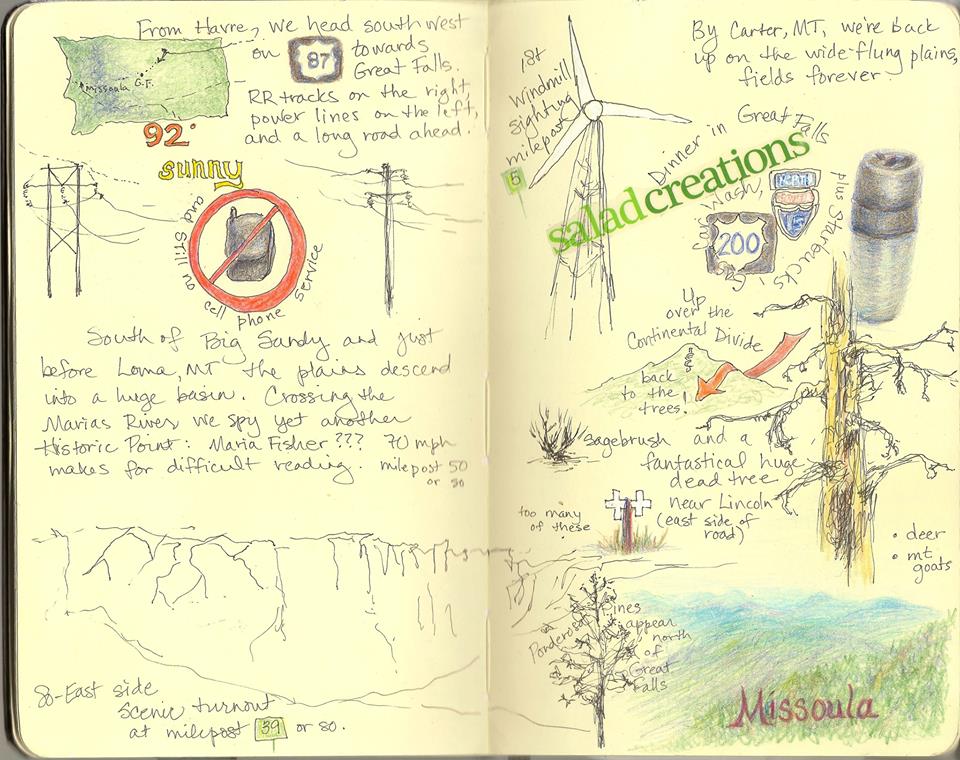 From Havre, we head southwest
on 87 towards
Great Falls.
RR tracks on the right,
power lines on the left,
and a long road ahead.
Missoula G.F.
92°
sunny
and still no cell phone service
South of Big Sandy and just
before Loma, MT the plains descend
into a huge basin. Crossing the
Marias River we spy yet another
Historic Point: Maria Fisher??? 70 mph
makes for difficult reading. milepost 50
or so
So-East side
scenic turnout
at milepost 39 or so.
1st
Windmill
sighting
milepost
5
By Carter, MT, we're back
up on the wide-flung plains,
fields forever
Dinner in Great Falls
salad creations
Car Wash,
200
15
plus Starbucks!
Up
over the
Continental Divide
back
to the
trees!
sagebrush and a
fantastical huge
dead tree
near Lincoln
(east side of
road)
too many
of these
• deer
• mt
goats
Ponderosa Pines
appear
north
of
Great
Falls
Missoula